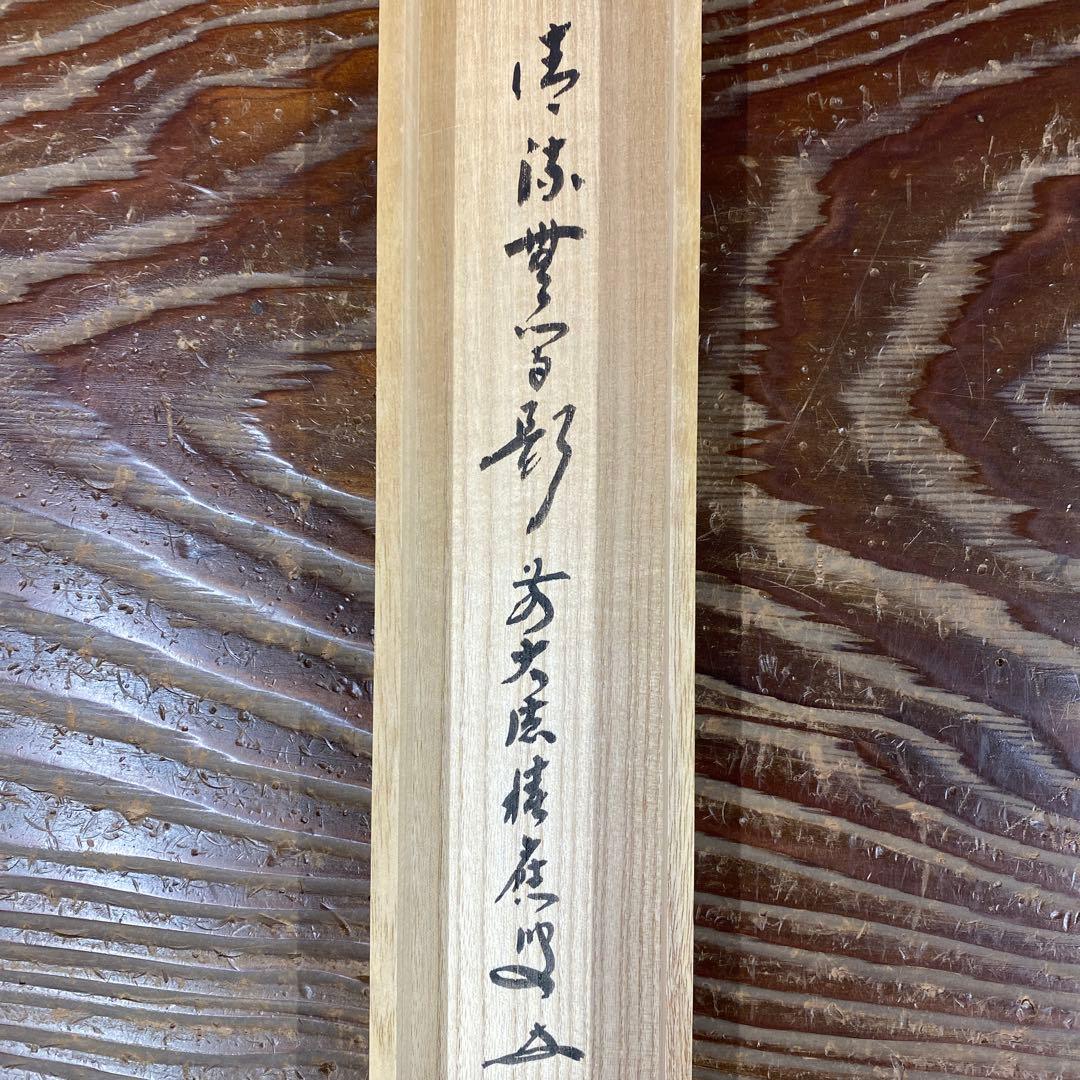 清流無間断 前大徳積應叟